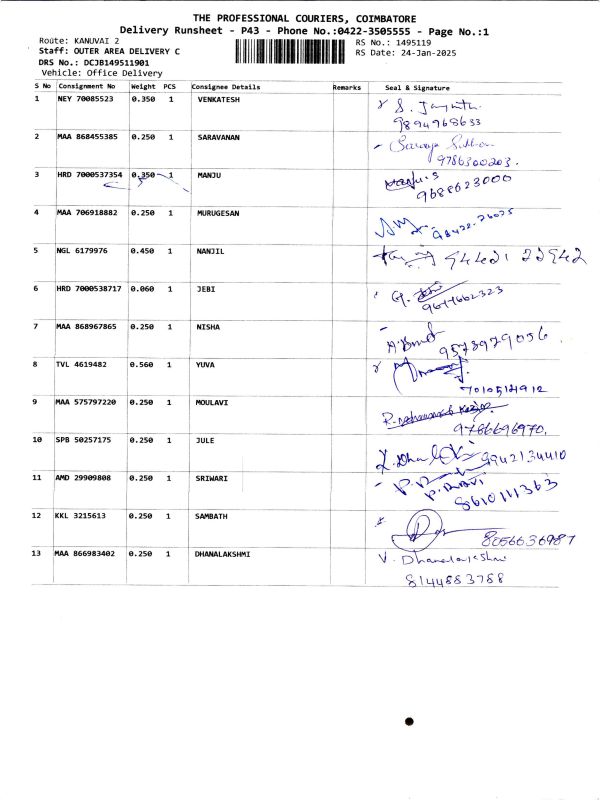 THE PROFESSIONAL COURIERS, COIMBATORE
Delivery Runsheet - P43 - Phone No.:0422-3505555 - Page No.:1
Route: KANUVAI 2 RS No.: 1495119
Staff: OUTER AREA DELIVERY C RS Date: 24-Jan-2025
DRS No.: DCJB149511901
Vehicle: Office Delivery
S No Consignment No Weight PCS Consignee Details Remarks Seal & Signature
1 NEY 70085523 0.350 1 VENKATESH
9894968633
2 MAA 868455385 0.250 1 SARAVANAN
9786300203.
3 HRD 7000537354 0.350 1 MANJU Manju.S
9688623000
4 MAA 706918882 0.250 1 MURUGESAN
98422-26025
5 NGL 6179976 0.450 1 NANJIL 94421 22942
6 HRD 7000538717 0.060 1 JEBI
9677662323
7 MAA 868967865 0.250 1 NISHA
9578979056
8 TVL 4619482 0.560 1 YUVA
9 MAA 575797220 0.250 1 MOULAVI
9786696970.
10 SPB 50257175 0.250 1 JULE
9942134410
11 AMD 29909808 0.250 1 SRIWARI
P. RAVI
8610111363
12 KKL 3215613 0.250 1 SAMBATH
8056636987
13 MAA 866983402 0.250 1 DHANALAKSHMI V. Dhanalakshmi
8144883788